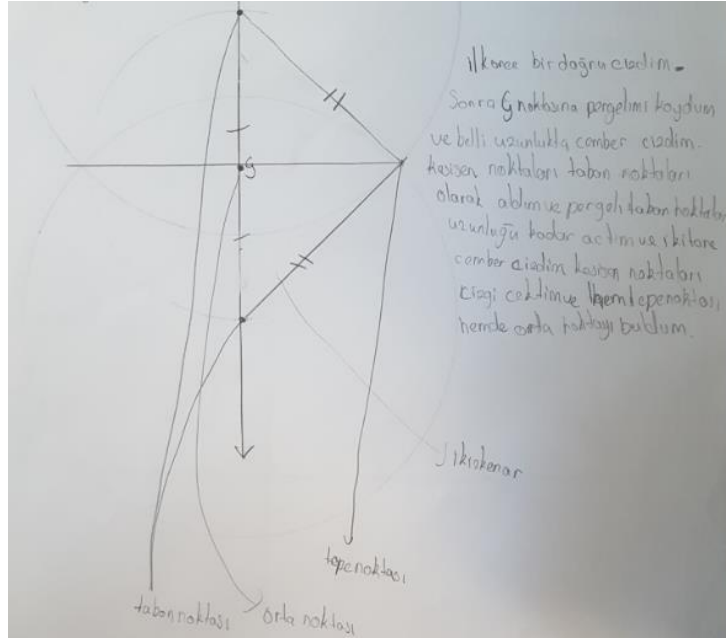 ilkönce bir doğru cizdim.
Sonra G noktasına pergelimi koydum
ve belli uzunlukta cember cizdim.
kesisen noktaları taban noktaları
olarak aldım ve pergeli taban noktaları
uzunluğu kadar actım ve iki tane
cember cizdim kesisen noktaları
cizgi cektim ve hem tepe noktası
hemde orta noktayı buldum.
G
ikizkenar
tepe noktası
taban noktası
orta noktası